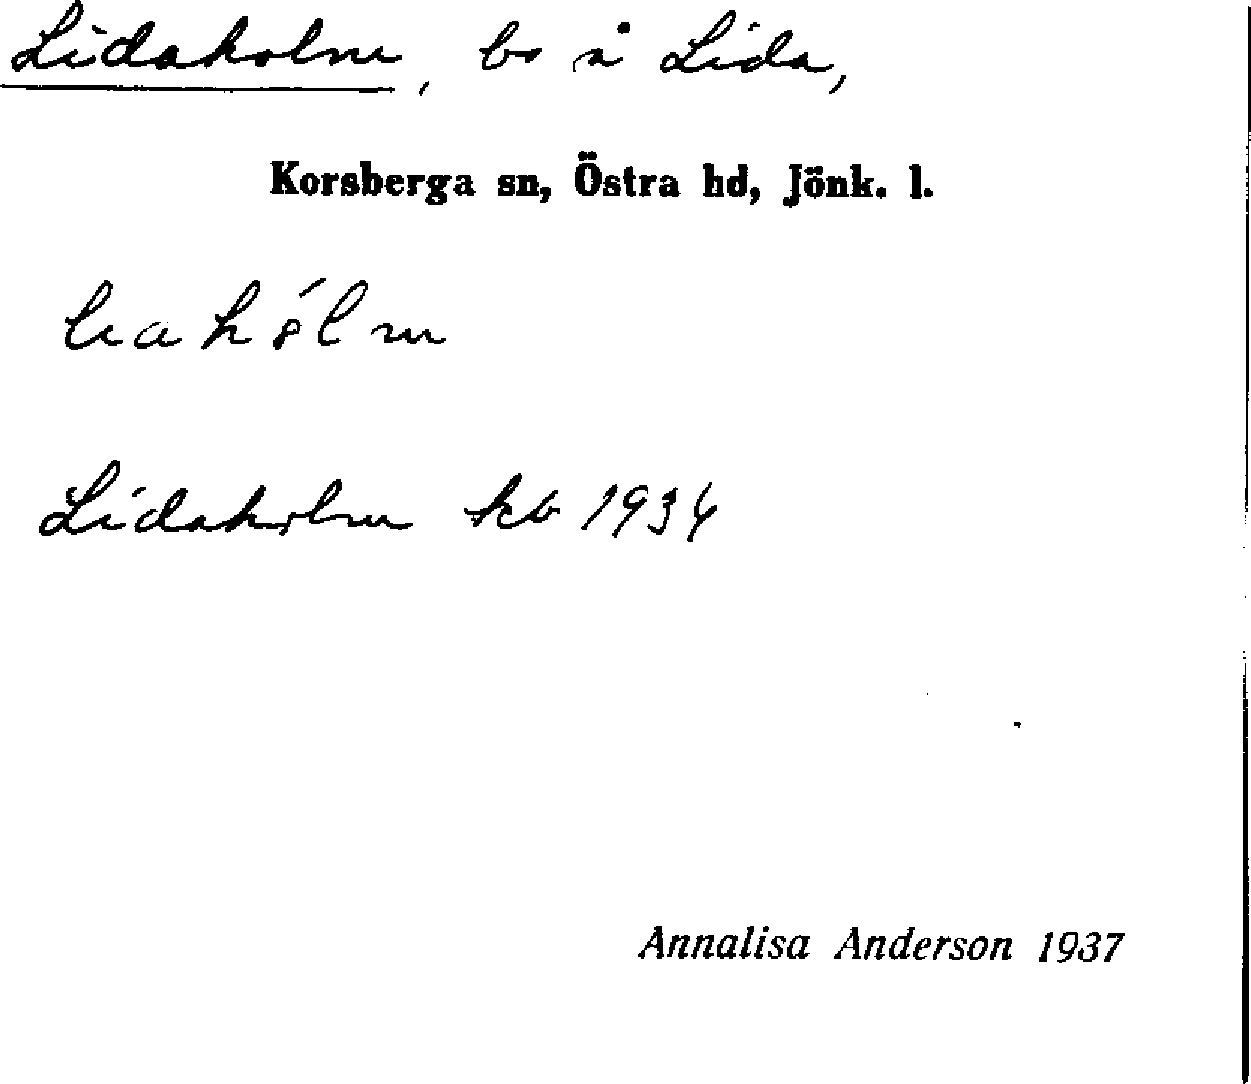 Lidaholm, bs å Lida,
Korsberga sn, Östra hd, Jönk. l.
Lidaholm kb 1934
Annalisa Anderson 1937